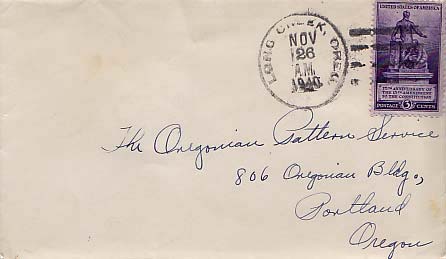 LONG CREEK, OREG.
NOV
26
A.M.
1940
UNITED STATES OF AMERICA
75TH ANNIVERSARY OF
THE 13TH AMENDMENT
TO THE CONSTITUTION
POSTAGE 3 CENTS
The Oregonian Pattern Service
806 Oregonian Bldg.,
Portland
Oregon